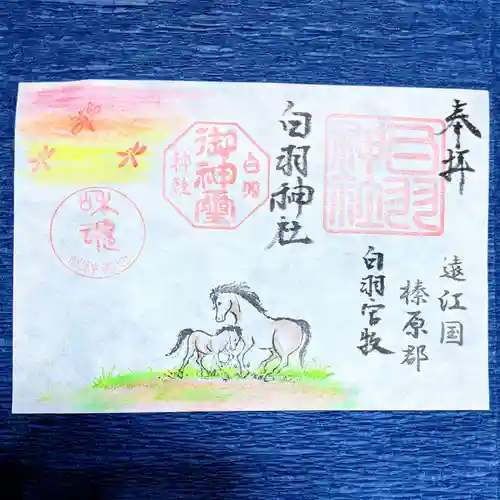 奉拝
遠江国
榛原郡
白羽官牧
白羽神社
白羽
神社
白羽
御神璽
神社